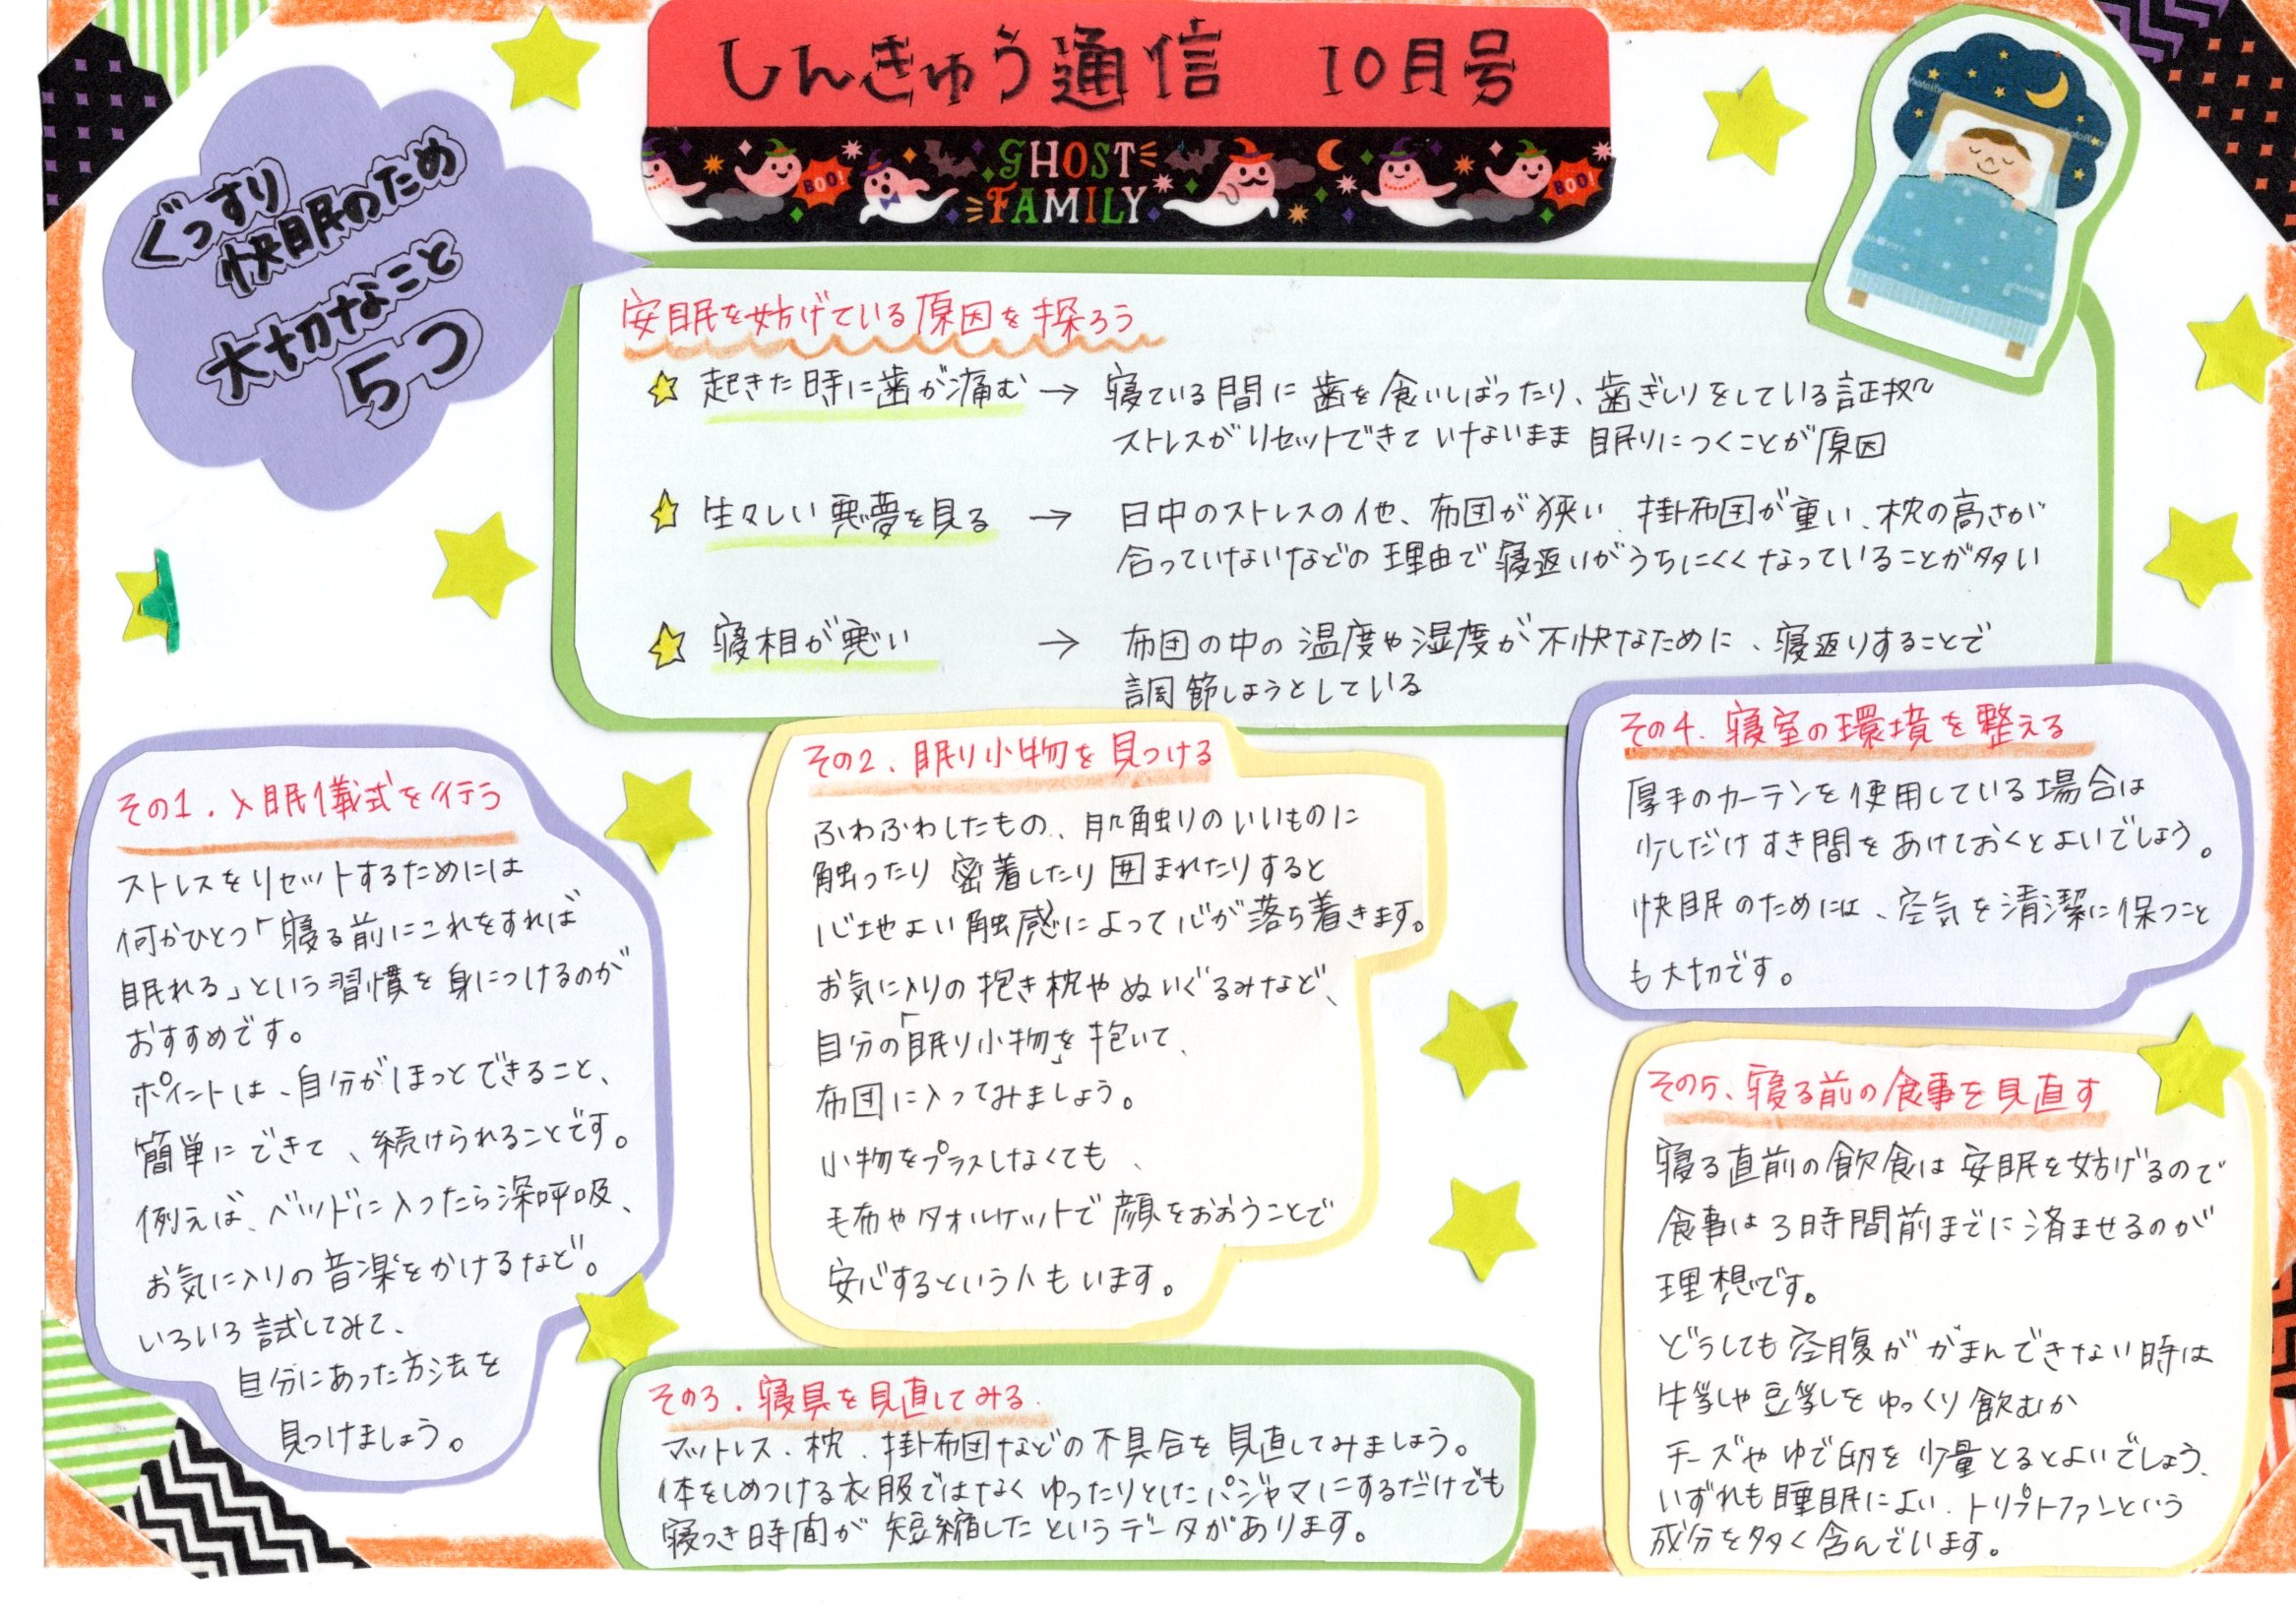 しんきゅう通信 10月号
GHOST
FAMILY
BOO!
BOO!
ぐっすり
快眠のため
大切なこと
5つ
安眠を妨げている原因を探ろう
起きた時に歯が痛む → 寝ている間に歯を食いしばったり、歯ぎしりをしている証拠
ストレスがリセットできていないまま眠りにつくことが原因
生々しい悪夢を見る → 日中のストレスの他、布団が狭い、掛布団が重い、枕の高さが
合っていないなどの理由で寝返りがうちにくくなっていることが多い
寝相が悪い → 布団の中の温度や湿度が不快なために、寝返りすることで
調節しようとしている
その1.入眠儀式を行う
ストレスをリセットするためには
何かひとつ「寝る前にこれをすれば
眠れる」という習慣を身につけるのが
おすすめです。
ポイントは、自分がほっとできること、
簡単にできて、続けられることです。
例えば、ベッドに入ったら深呼吸、
お気に入りの音楽をかけるなど。
いろいろ試してみて、
自分にあった方法を
見つけましょう。
その2、眠り小物を見つける
ふわふわしたもの、肌触りのいいものに
触ったり密着したり囲まれたりすると
心地よい触感によって心が落ち着きます。
お気に入りの抱き枕やぬいぐるみなど、
自分の「眠り小物」を抱いて、
布団に入ってみましょう。
小物をプラスしなくても、
毛布やタオルケットで顔をおおうことで
安心するという人もいます。
その3.寝具を見直してみる.
マットレス、枕、掛布団などの不具合を見直してみましょう。
体をしめつける衣服ではなくゆったりとしたパジャマにするだけでも
寝つき時間が短縮したというデータがあります。
その4.寝室の環境を整える
厚手のカーテンを使用している場合は
少しだけすき間をあけておくとよいでしょう。
快眠のためには、空気を清潔に保つこと
も大切です。
その5、寝る前の食事を見直す
寝る直前の飲食は安眠を妨げるので
食事は3時間前までに済ませるのが
理想です。
どうしても空腹ががまんできない時は
牛乳や豆乳をゆっくり飲むか
チーズやゆで卵を少量とるとよいでしょう、
いずれも睡眠によい、トリプトファンという
成分を多く含んでいます。